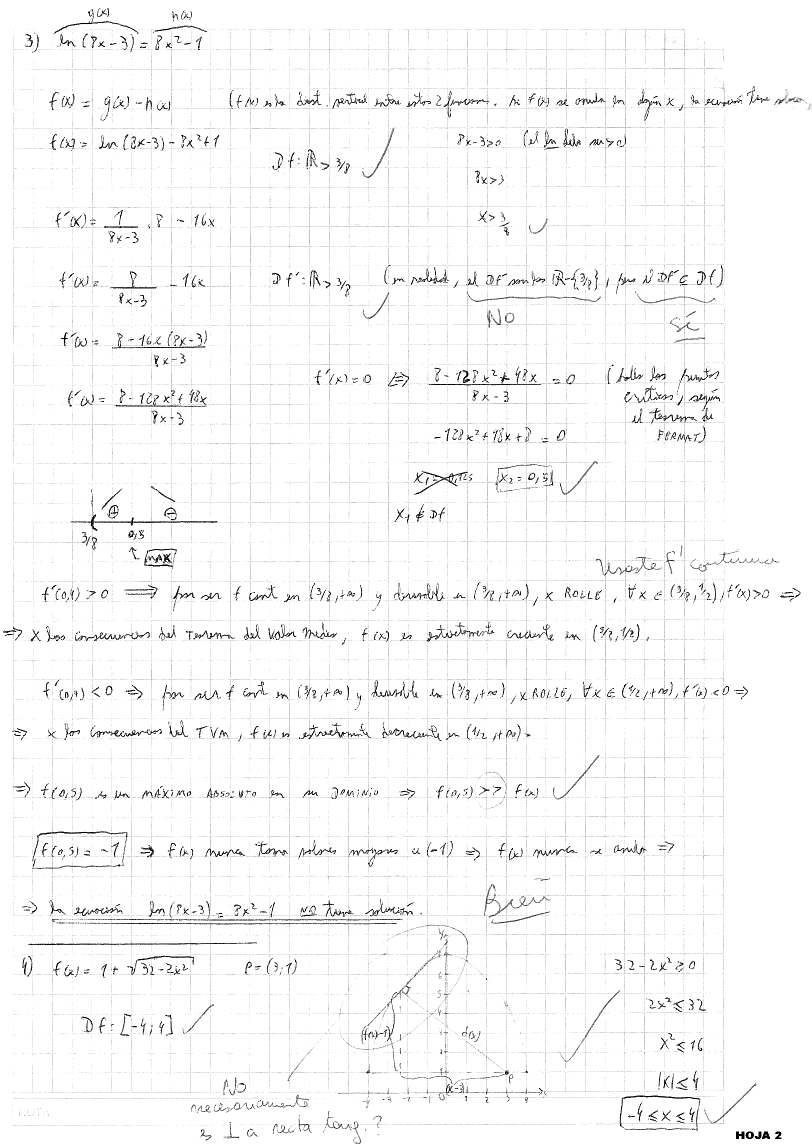 g(x) h(x)
3) ln(8x-3) = 8x²-1
f(x) = g(x) - h(x) (f(x) es la dist. vertical entre estas 2 funciones. Si f(x) se anula en algún x, la ecuación tiene solución)
f(x) = ln(8x-3) - 8x²+1 8x-3>0 (el ln debe ser >0)
Df: ℝ > 3/8 8x>3
f'(x) = 1/(8x-3) . 8 - 16x x > 3/8
f'(x) = 8/(8x-3) - 16x Df': ℝ > 3/8 (en realidad, el Df' son los ℝ-{3/8}, pero Df' ⊆ Df)
NO Sí
f'(x) = (8-16x(8x-3))/(8x-3)
f'(x)=0 ⟺ (8-128x²+48x)/(8x-3) = 0 (hallo los puntos
críticos, según
el teorema de
FERMAT)
f'(x) = (8-128x²+48x)/(8x-3)
-128x²+48x+8 = 0
X₁=-0,125 X₂=0,5
X₁ ∉ Df
⊕ ⊖
3/8 0,5
↑ MAX
Usaste f' continua
f'(0,4) > 0 ⟹ por ser f cont en (3/8,+∞) y derivable en (3/8,+∞), x ROLLE, ∀x ∈ (3/8,1/2), f'(x)>0 ⇒
⇒ x las consecuencias del Teorema del Valor Medio, f(x) es estrictamente creciente en (3/8,1/2).
f'(0,7) < 0 ⇒ por ser f cont en (3/8,+∞) y derivable en (3/8,+∞), x ROLLE, ∀x ∈ (1/2,+∞), f'(x)<0 ⇒
⇒ x las consecuencias del TVM, f(x) es estrictamente decreciente en (1/2,+∞).
⇒ f(0,5) es un MÁXIMO ABSOLUTO en su DOMINIO ⇒ f(0,5) >> f(x)
f(0,5) = -1 ⇒ f(x) nunca toma valores mayores a (-1) ⇒ f(x) nunca se anula ⇒
⇒ la ecuación ln(8x-3) = 8x²-1 NO tiene solución.
Bien
4) f(x) = 1+√(32-2x²) P=(3;1) 32-2x²≥0
Df: [-4;4] 2x²≤32
x²≤16
|x|≤4
-4≤x≤4
y
(f(x)-1) d(x)
(x-3) P
x
No
necesariamente
es ⊥ a recta tang.?
NOTA
HOJA 2